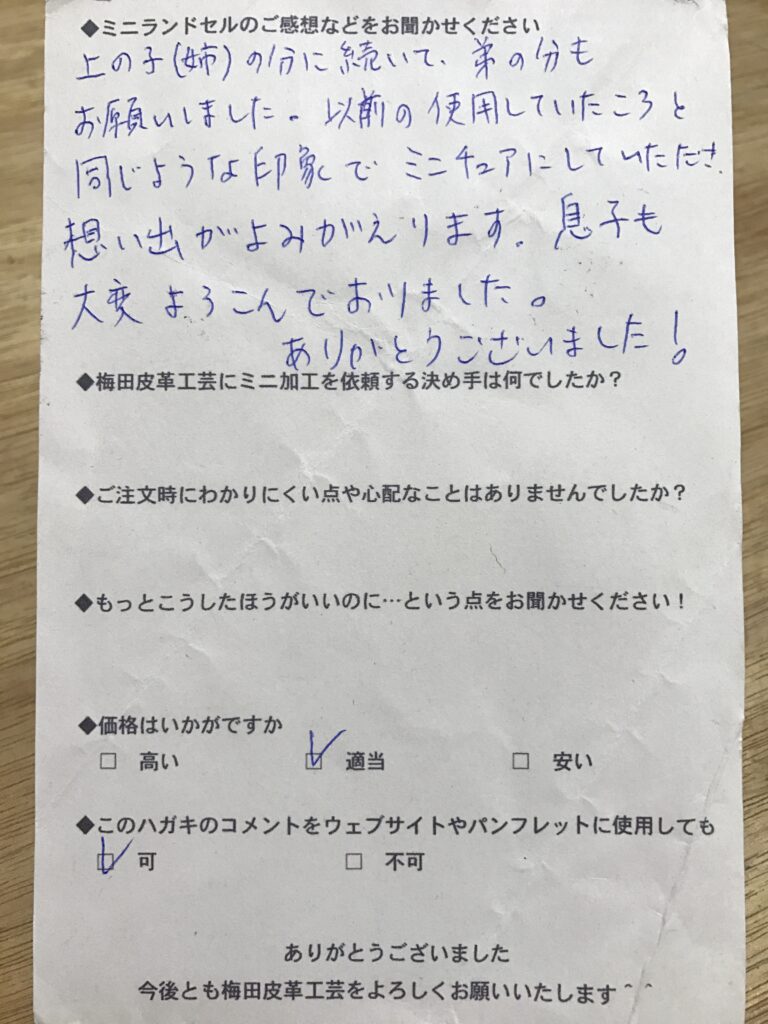 ◆ミニランドセルのご感想などをお聞かせください
上の子(姉)の分に続いて、弟の分も
お願いしました。以前の使用していたころと
同じような印象でミニチュアにしていただき、
想い出がよみがえります。息子も
大変よろこんでおりました。
ありがとうございました!
◆梅田皮革工芸にミニ加工を依頼する決め手は何でしたか?
◆ご注文時にわかりにくい点や心配なことはありませんでしたか?
◆もっとこうしたほうがいいのに…という点をお聞かせください!
◆価格はいかがですか
□ 高い ☑ 適当 □ 安い
◆このハガキのコメントをウェブサイトやパンフレットに使用しても
☑ 可 □ 不可
ありがとうございました
今後とも梅田皮革工芸をよろしくお願いいたします^^